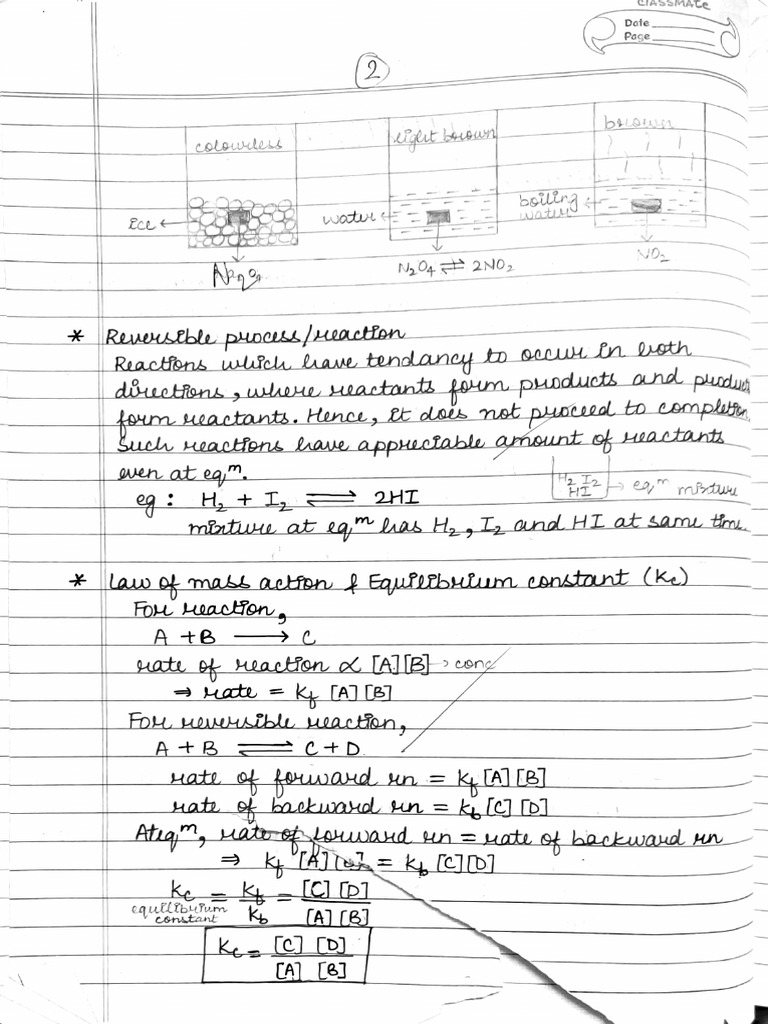 CLASSMATE
Date
Page
2
colourless
light brown
brown
ice
water
boiling
water
N2O4
N₂O₄ ⇌ 2NO₂
NO₂
* Reversible process/reaction
Reactions which have tendancy to occur in both
directions, where reactants form products and products
form reactants. Hence, it does not proceed to completion.
Such reactions have appreciable amount of reactants
even at eqᵐ.
eg : H₂ + I₂ ⇌ 2HI
H₂ I₂
HI
→ eqᵐ mixture
mixture at eqᵐ has H₂, I₂ and HI at same time.
* Law of mass action & Equilibrium constant (Kc)
For reaction,
A + B ⟶ C
rate of reaction ∝ [A][B] → conc
⇒ rate = Kf [A][B]
For reversible reaction,
A + B ⇌ C + D
rate of forward rn = Kf [A][B]
rate of backward rn = Kb [C][D]
At eqᵐ, rate of forward rn = rate of backward rn
⇒ Kf [A][B] = Kb [C][D]
Kc = Kf/Kb = [C][D]/[A][B]
equilibrium
constant
Kc = [C][D]/[A][B]